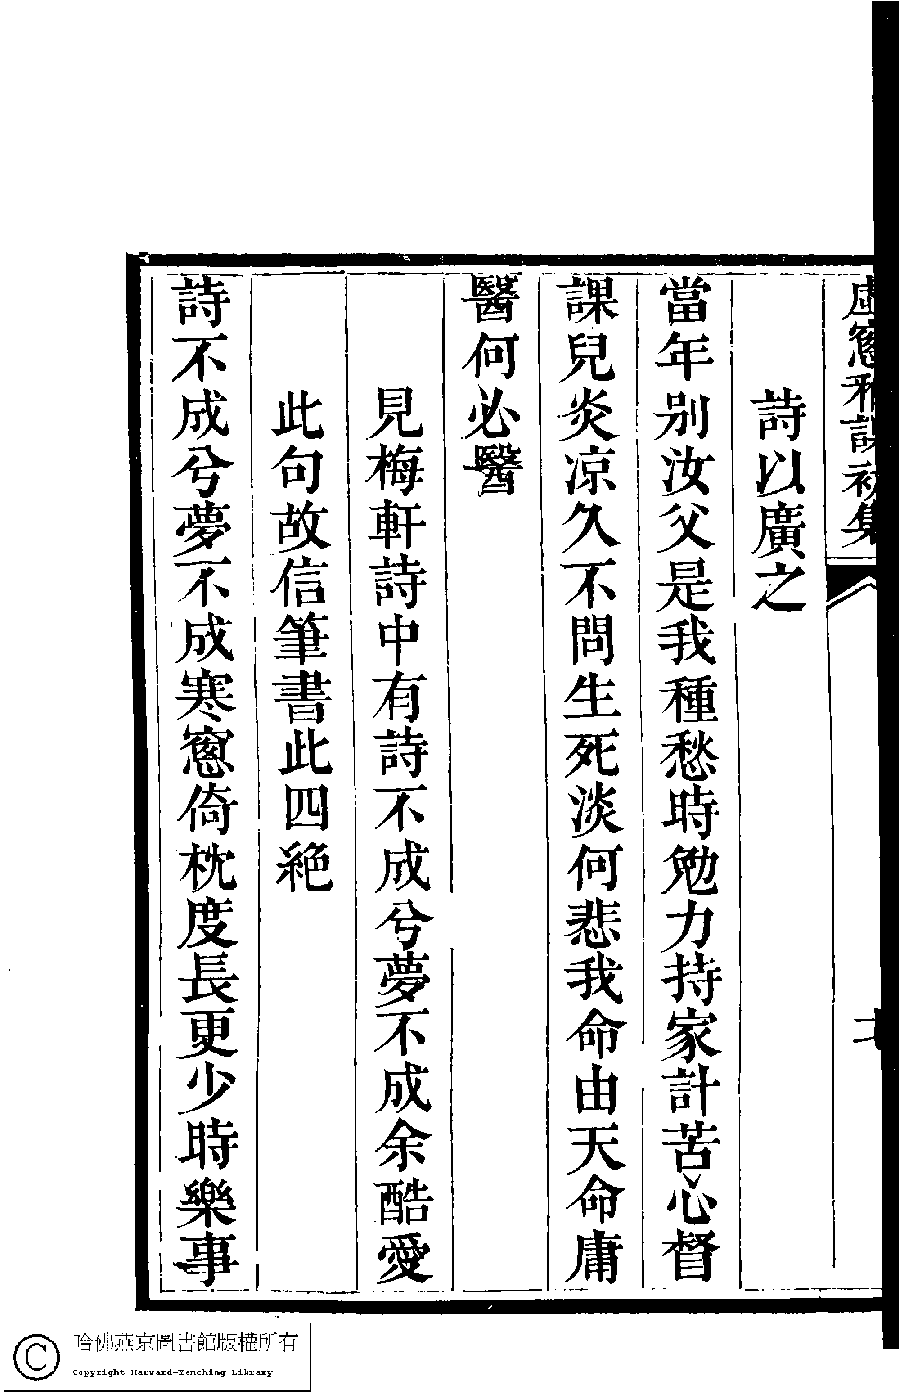 虛窻雅課初集
詩以廣之
當年別汝父是我種愁時勉力持家計苦心督
課兒炎凉久不問生死淡何悲我命由天命庸
醫何必醫
見梅軒詩中有詩不成兮夢不成余酷愛
此句故信筆書此四絕
詩不成兮夢不成寒窻倚枕度長更少時樂事
哈佛燕京圖書館版權所有
Copyright Harvard-Yenching Library